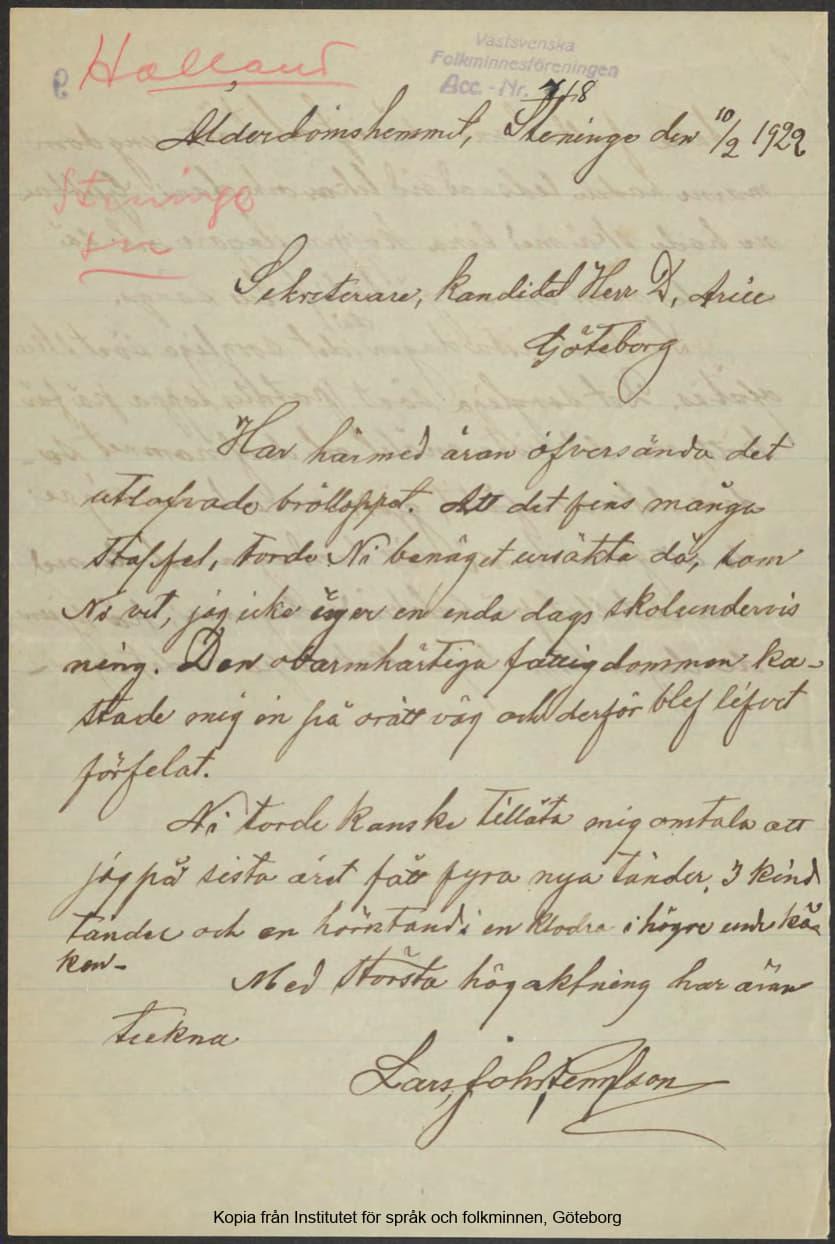 Halland
Västsvenska
Folkminnesföreningen
Acc.-Nr. 718
9
Ålderdomshemmet, Steninge den 10/2 1922
Steninge
sn
Sekreterare, kandidat Herr D, Arill
Göteborg
Har härmed äran öfversända det
utlofvade brölloppet. Att det fins många
staffel, torde Ni benäget ursäkta då, som
Ni vet, jag icke äger en enda dags skolundervis
ning. Den obarmhärtiga fattigdommen ka-
stade mig in på orätt väg och derför blef lifvet
förfelat.
Ni torde kanske tillåta mig omtala att
jag på sista året fått fyra nya tänder, 3 kind
tänder och en hörntand i en klodra i högre undr kä-
ken-
Med största högaktning har äran
teckna
Lars, Joh,
Kopia från Institutet för språk och folkminnen, Göteborg